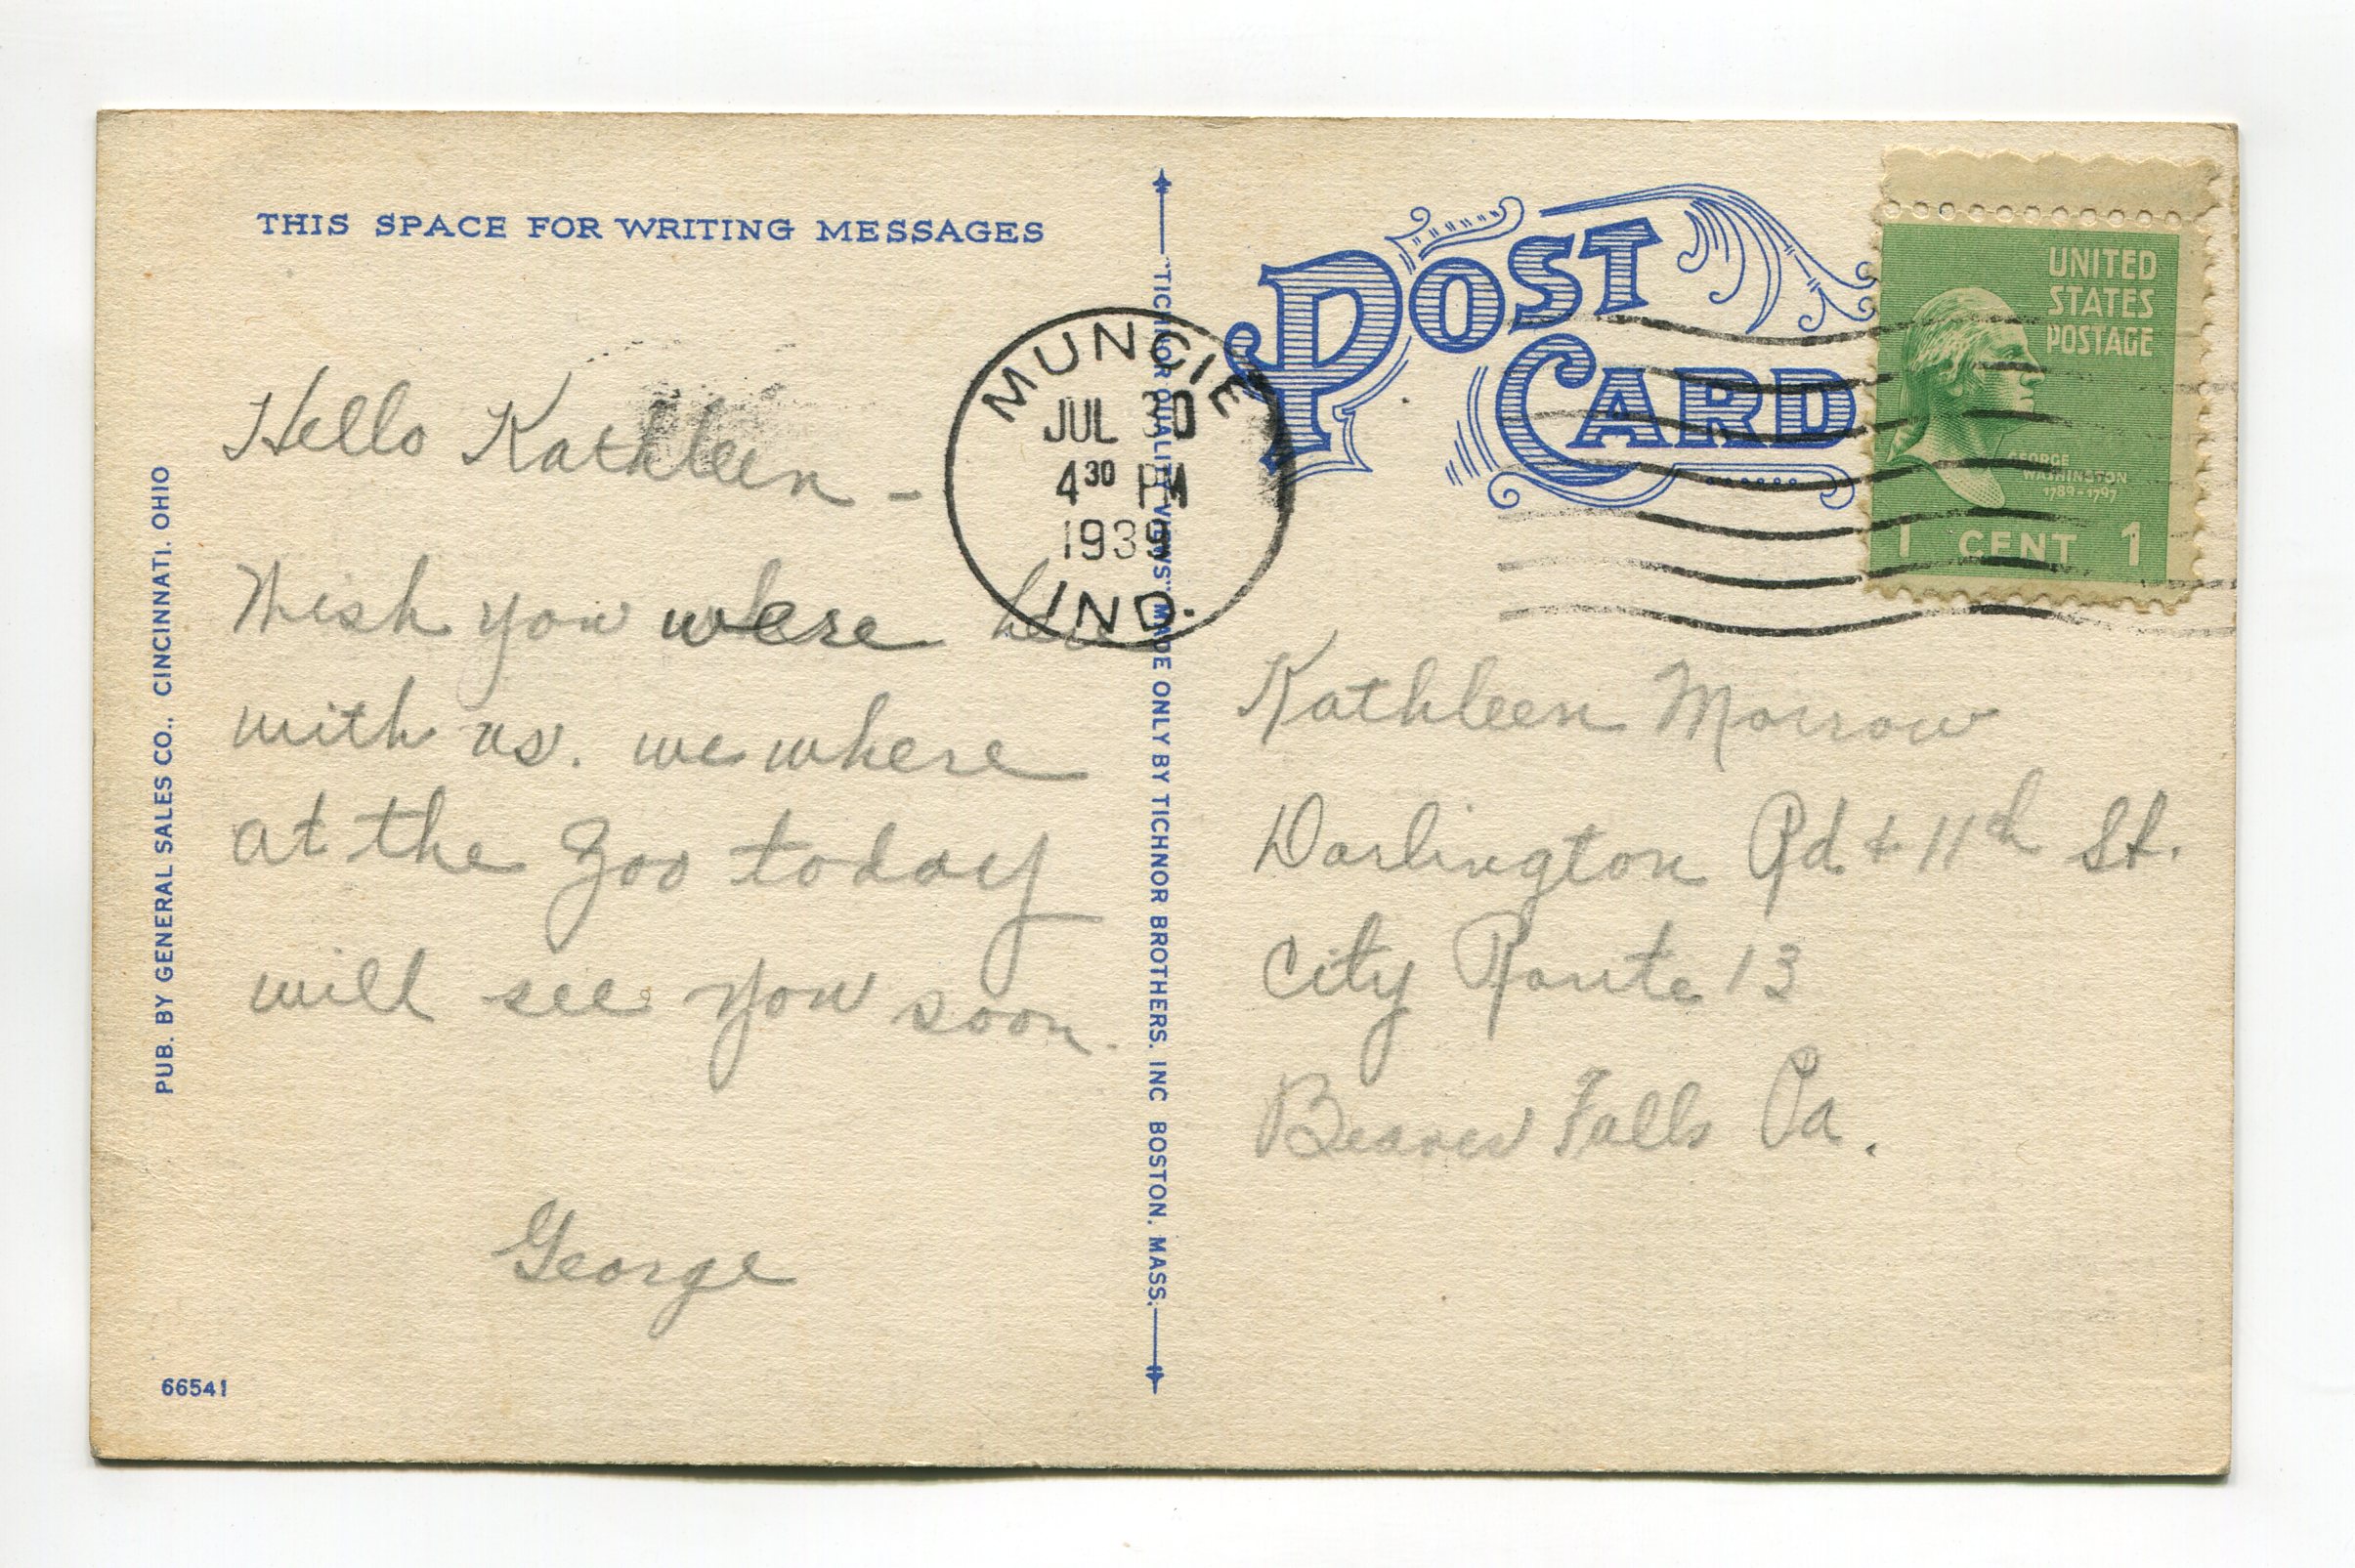 THIS SPACE FOR WRITING MESSAGES
Hello Kathleen -
Wish you were here
with us. we where
at the Zoo today
will see you soon.
George
PUB. BY GENERAL SALES CO., CINCINNATI, OHIO
66541
"TICHNOR QUALITY VIEWS" MADE ONLY BY TICHNOR BROTHERS. INC BOSTON. MASS.
MUNCIE
JUL 30
4 30 PM
1939
IND.
POST
CARD
UNITED
STATES
POSTAGE
GEORGE
WASHINGTON
1789-1797
1 CENT 1
Kathleen Morrow
Darlington Rd + 11th St.
City Route 13
Beaver Falls Pa.